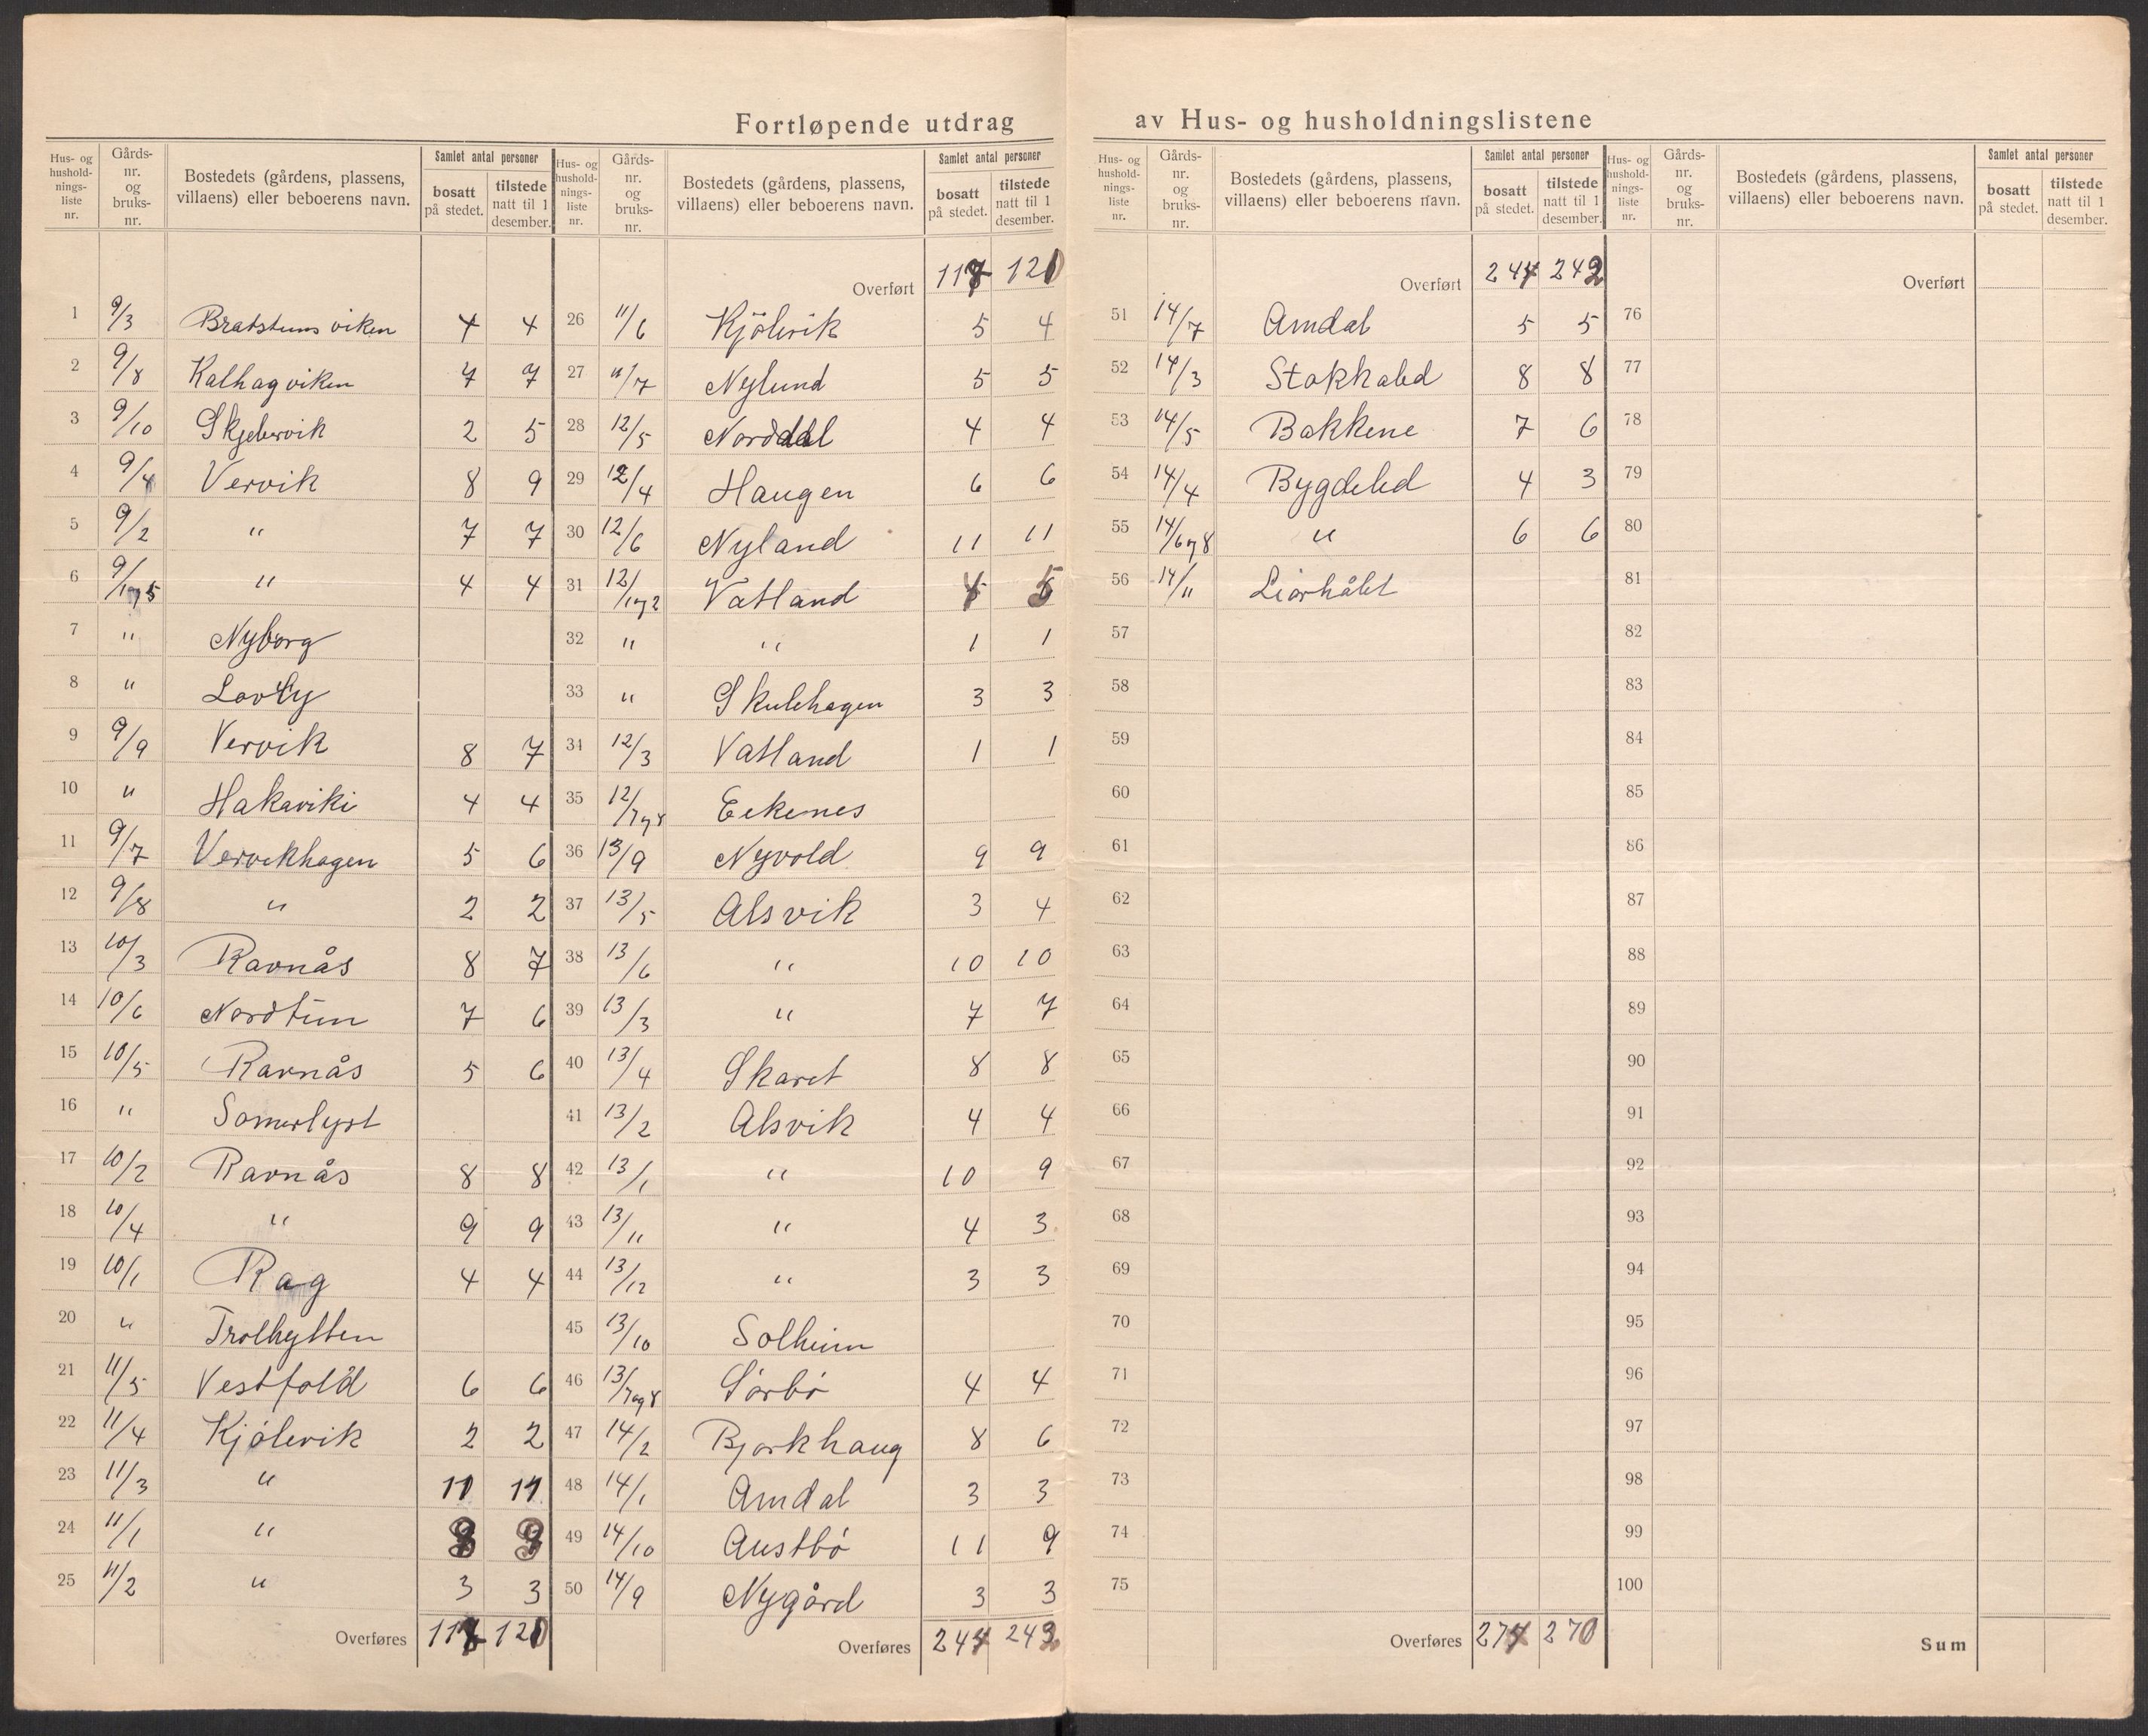 Fortløpende utdrag av Hus- og husholdningslistene
Hus- og husholdningsliste nr. | Gårdsnr. og bruksnr. | Bostedets (gårdens, plassens, villaens) eller beboerens navn. | Samlet antal personer | bosatt på stedet. | tilstede natt til 1 desember.
1 9/3 Bratstumsviken 4 4
2 9/8 Kalhagviken 7 7
3 9/10 Skjebervik 2 5
4 9/4 Vervik 8 9
5 9/2 " 7 7
6 9/1og5 " 4 4
7 " Nyborg
8 " Lovly
9 9/9 Vervik 8 7
10 " Hakaviki 4 4
11 9/7 Vervikhagen 5 6
12 9/8 " 2 2
13 10/3 Ravnås 8 7
14 10/6 Nordtun 7 6
15 10/5 Ravnås 5 6
16 " Somerlyst
17 10/2 Ravnås 8 8
18 10/4 " 9 9
19 10/1 Rag 4 4
20 " Trolhytten
21 11/5 Vestfold 6 6
22 11/4 Kjølevik 2 2
23 11/3 " 11
24 11/1 "
25 11/2 " 3 3
Overføres
Hus- og husholdningsliste nr. | Gårdsnr. og bruksnr. | Bostedets (gårdens, plassens, villaens) eller beboerens navn. | Samlet antal personer | bosatt på stedet. | tilstede natt til 1 desember.
Overført
26 11/6 Kjölevik 5 4
27 11/7 Nylund 5 5
28 12/5 Norddal 4 4
29 12/4 Haugen 6 6
30 12/6 Nyland 11 11
31 12/1og2 Vatland 5
32 " " 1 1
33 " Skulehagen 3 3
34 12/3 Vatland 1 1
35 12/7og8 Eekenes
36 13/9 Nyvold 9 9
37 13/5 Alsvik 3 4
38 13/6 " 10 10
39 13/3 " 7 7
40 13/4 Skaret 8 8
41 13/2 Alsvik 4 4
42 13/1 " 10 9
43 13/11 " 4 3
44 13/12 " 3 3
45 13/10 Solheim
46 13/7og8 Sørbø 4 4
47 14/2 Bjorkhaug 8 6
48 14/1 Amdal 3 3
49 14/10 Austbø 11 9
50 14/9 Nygård 3 3
Overføres
Hus- og husholdningsliste nr. | Gårdsnr. og bruksnr. | Bostedets (gårdens, plassens, villaens) eller beboerens navn. | Samlet antal personer | bosatt på stedet. | tilstede natt til 1 desember.
Overført 242
51 14/7 Amdal 5 5
52 14/3 Stakkaled 8 8
53 14/5 Bakkene 7 6
54 14/4 Bygdeled 4 3
55 14/6og8 " 6 6
56 14/11 Liarhålet
57
58
59
60
61
62
63
64
65
66
67
68
69
70
71
72
73
74
75
Overføres 270
Hus- og husholdningsliste nr. | Gårdsnr. og bruksnr. | Bostedets (gårdens, plassens, villaens) eller beboerens navn. | Samlet antal personer | bosatt på stedet. | tilstede natt til 1 desember.
Overført
76
77
78
79
80
81
82
83
84
85
86
87
88
89
90
91
92
93
94
95
96
97
98
99
100
Sum